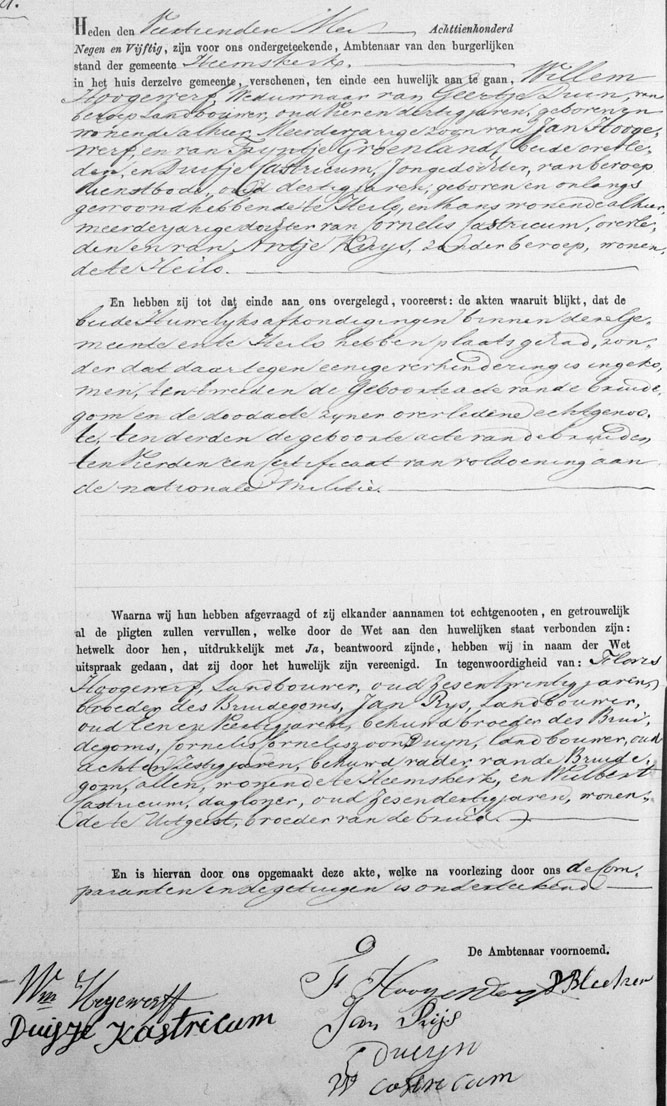 Heden den Veertienden Mei Achttienhonderd
Negen en Vijftig, zijn voor ons ondergeteekende, Ambtenaar van den burgerlijken
stand der gemeente Heemskerk.
in het huis derzelve gemeente, verschenen, ten einde een huwelijk aan te gaan, Willem
Hoogewerf, Weduwnaar van Geertje Duin, van
beroep Landbouwer, oud Vier en dertig jaren, geboren en
wonende alhier, Meerderjarige zoon van Jan Hooge
werf, en van Trijntje Groenland, beide overle
den, en Duifje Castricum, Jongedochter, van beroep
dienstbode, oud dertig jaren, geboren en onlangs
gewoond hebbende te Heilo, en thans wonende alhier,
meerderjarige dochter van Cornelis Castricum, overle
den en van Antje Kuijs, zonder beroep, wonen
de te Heilo.
En hebben zij tot dat einde aan ons overgelegd, vooreerst: de akten waaruit blijkt, dat de
beide Huwelijksafkondigingen binnen deze Ge
meente en te Heilo hebben plaats gehad, zon
der dat daartegen eenige verhindering is ingeko
men, ten tweeden de Geboorteacte van de bruide
gom en de doodacte zijner overledene echtgenoo
te, ten derden de geboorte acte van de bruid en
ten Vierden een Certificaat van voldoening aan
de nationale Militie.
Waarna wij hun hebben afgevraagd of zij elkander aannamen tot echtgenooten, en getrouwelijk
al de pligten zullen vervullen, welke door de Wet aan den huwelijken staat verbonden zijn:
hetwelk door hen, uitdrukkelijk met Ja, beantwoord zijnde, hebben wij in naam der Wet
uitspraak gedaan, dat zij door het huwelijk zijn vereenigd. In tegenwoordigheid van: Floris
Hoogewerf, Landbouwer, oud zesentwintig jaren,
broeder des Bruidegoms, Jan Rijs, Landbouwer,
oud Een en Veertig jaren, behuwd broeder des Brui
degoms, Cornelis Corneliszoon Duijn, landbouwer, oud
acht en Zestig jaren, behuwd vader van de Bruide
gom, allen, wonende te Heemskerk, en Wulbert
Castricum, daglooner, oud zesendertig jaren, wonen
de te Uitgeest, broeder van de bruid.
En is hiervan door ons opgemaakt deze akte, welke na voorlezing door ons de Com
paranten en de getuigen is onderteekend
De Ambtenaar voornoemd.
F Hoogewerf
D Bleeker
Wm Hogewerff
Duifje Kastrecum
Jan Rijs
C Duijn
W Castricum